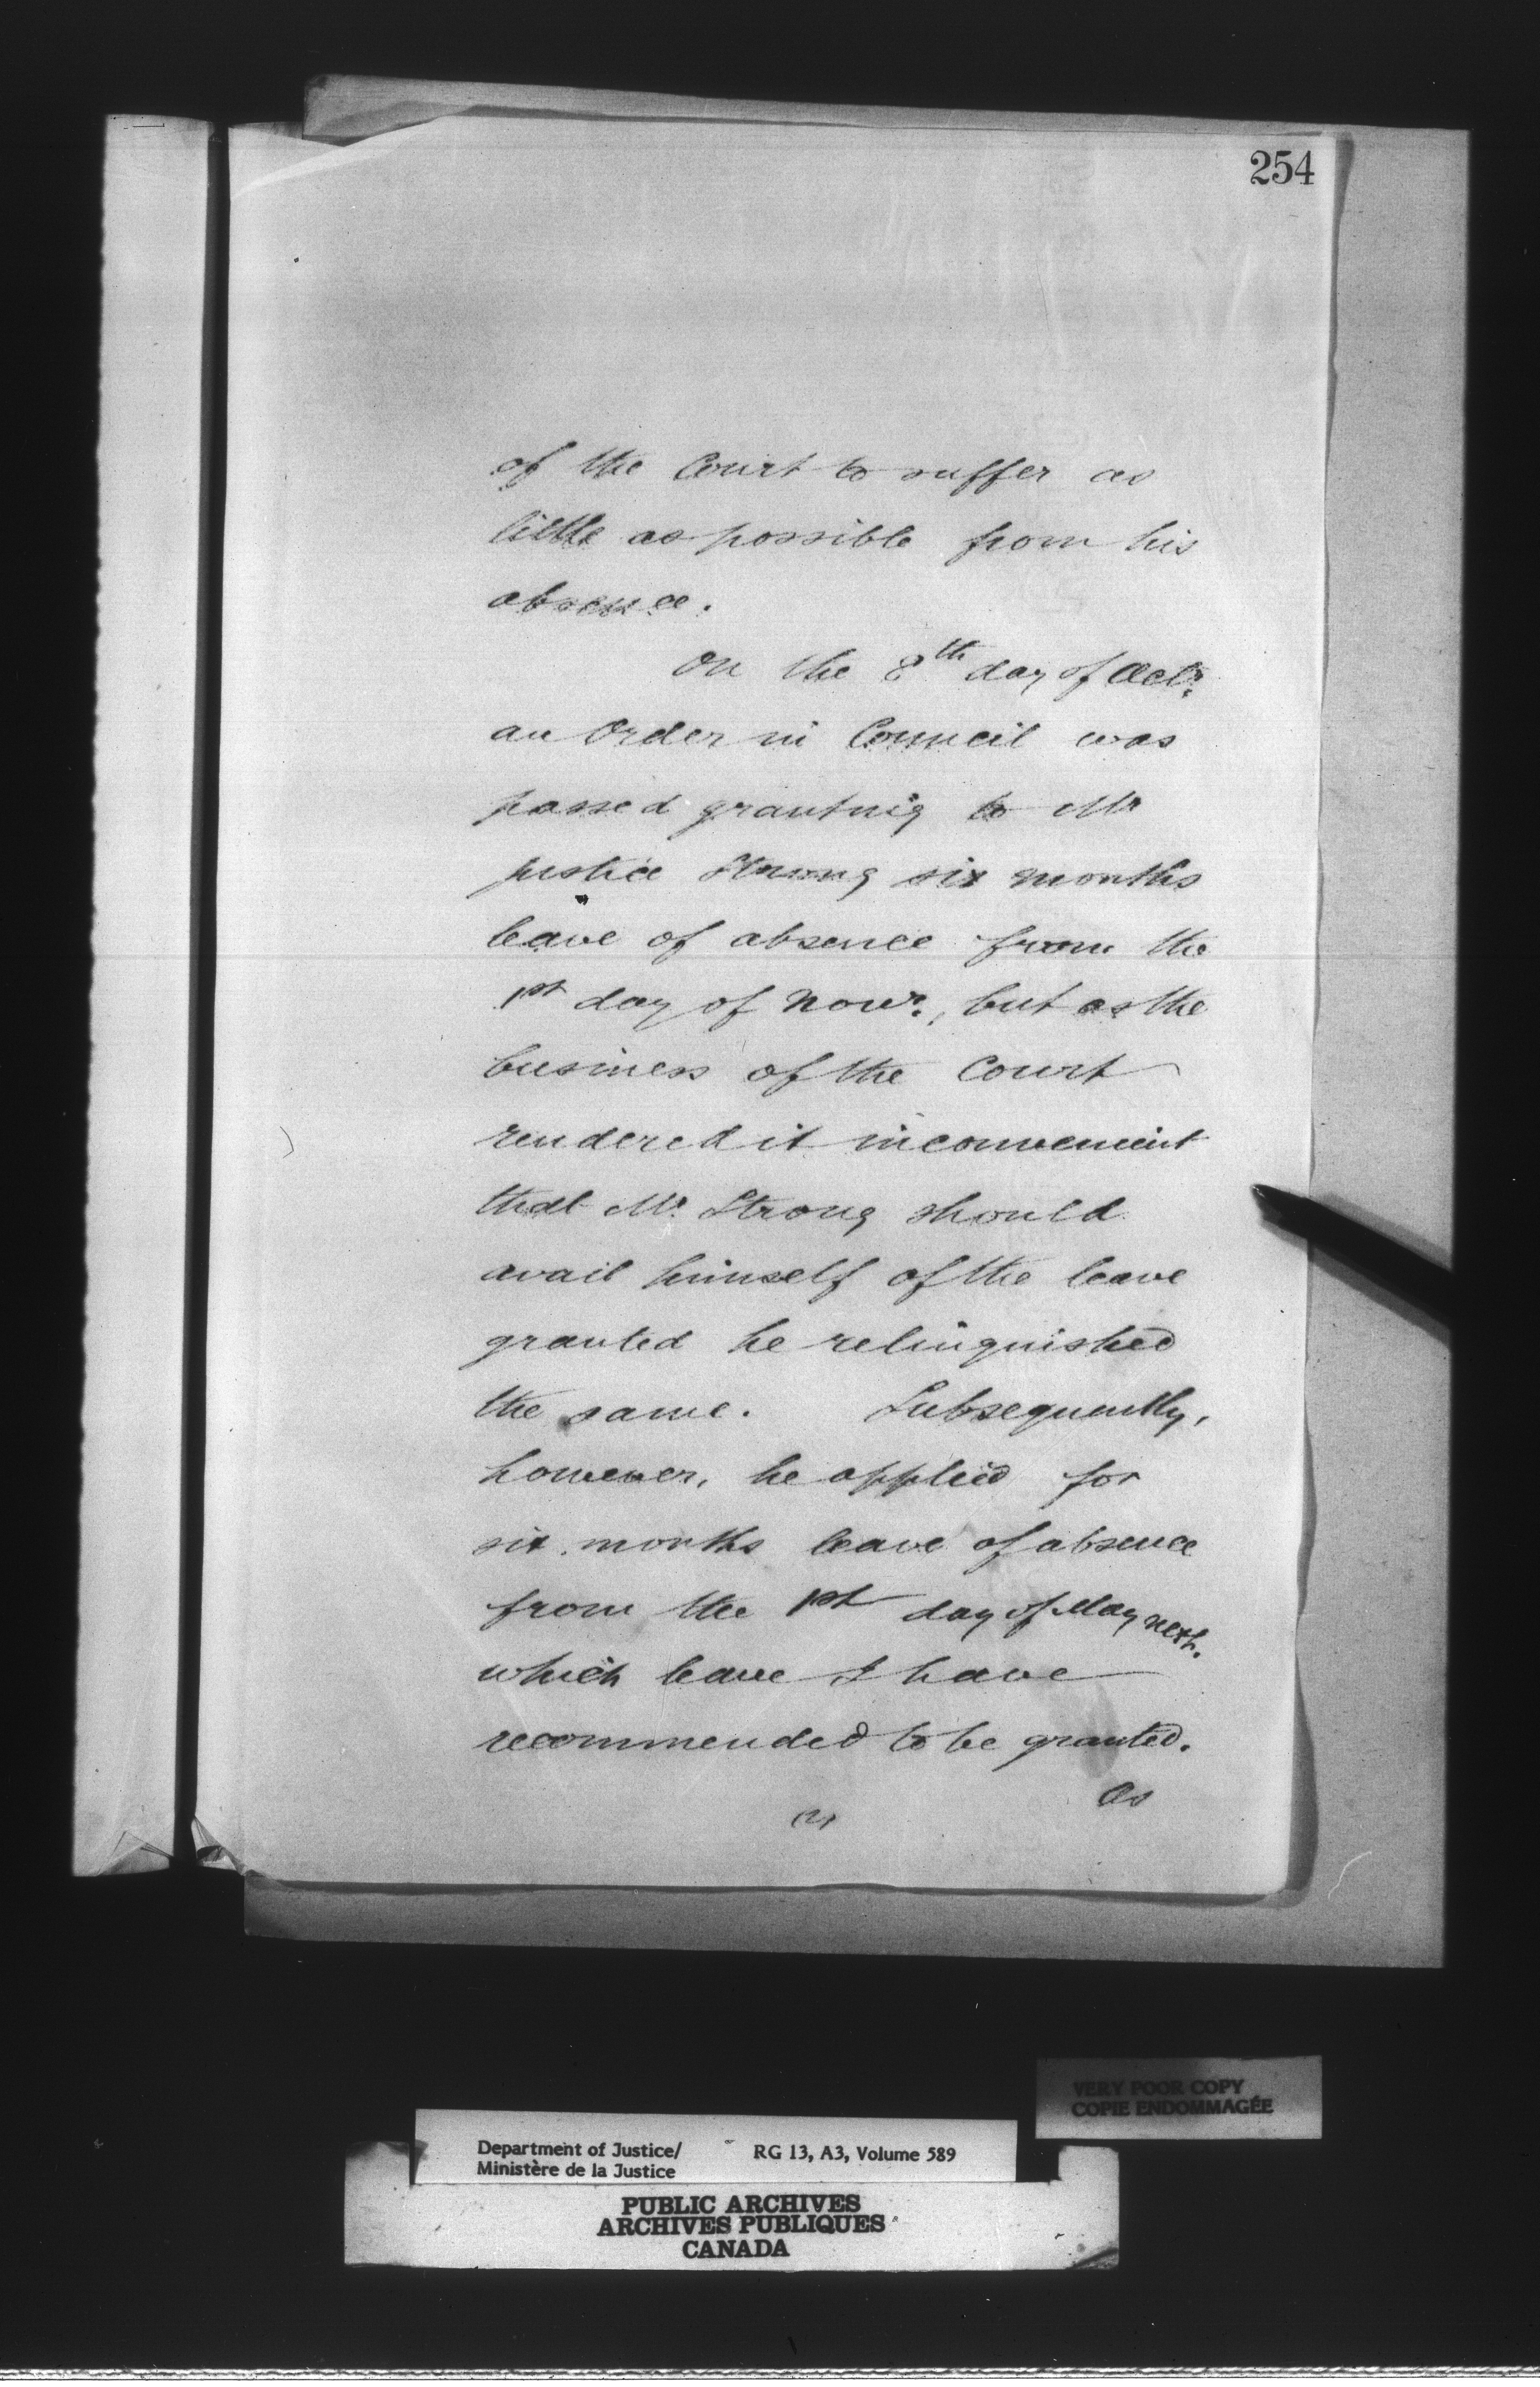 254
of the Court to suffer as
little as possible from his
absence.
On the 8th day of Octr.
an Order in Council was
passed granting to Mr
Justice Strong six months
leave of absence from the
1st day of Novr., but as the
business of the Court
rendered it inconvenient
that Mr. Strong should
avail himself of the leave
granted he relinquished
the same. Subsequently,
however, he applied for
six months leave of absence
from the 1st day of May next.
which leave I have
recommended to be granted.
As
(2)
VERY POOR COPY
COPIE ENDOMMAGÉE
Department of Justice/ RG 13, A3, Volume 589
Ministère de la Justice
PUBLIC ARCHIVES
ARCHIVES PUBLIQUES
CANADA